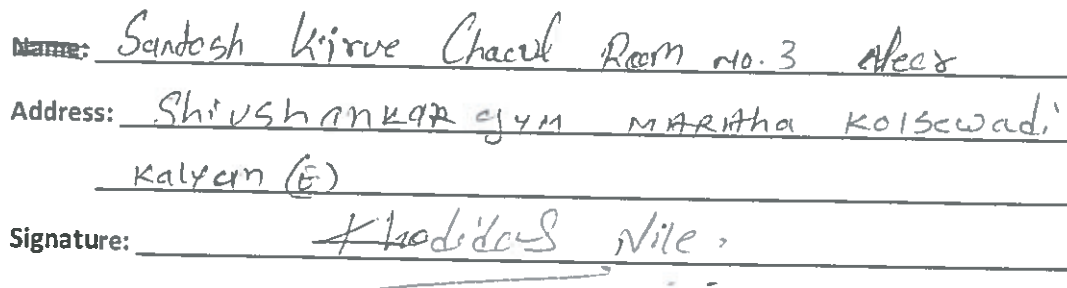 Name: Santosh Kirve Chacul Room no. 3 Near
Address: Shivshankar gym MARAtha Kolsewadi
Kalyan (E)
Signature: Khodidas Nile.